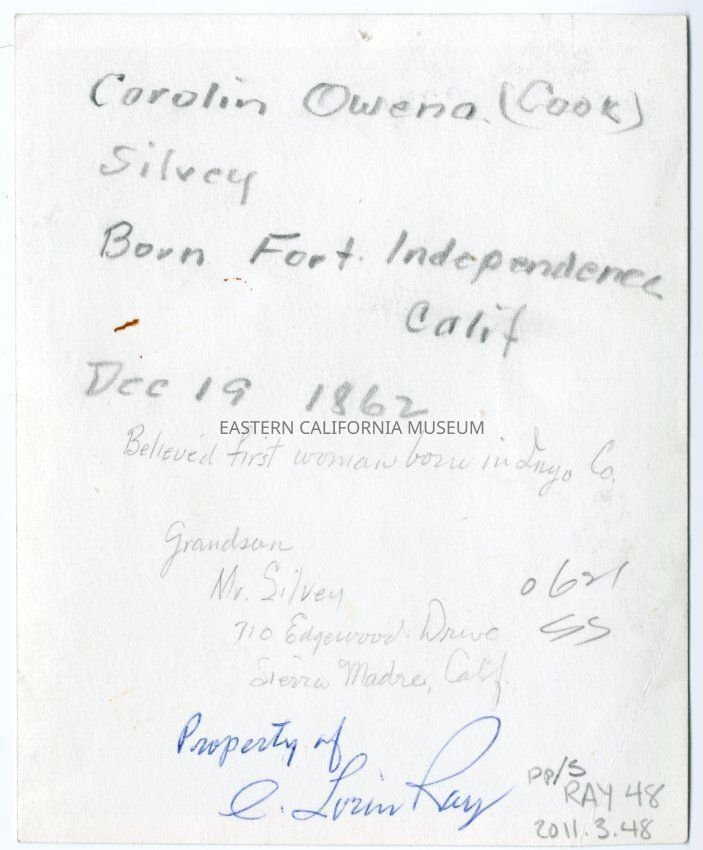 Carolin Owena (Cook)
Silvey
Born Fort. Independence
Calif
Dec 19 1862
EASTERN CALIFORNIA MUSEUM
Believed first woman born in Inyo Co.
Grandson
Mr. Silvey
710 Edgewood Drive
Sierra Madre, Calif.
0621
SS
Property of
C. Lorin Ray
PP/S
RAY 48
2011.3.48